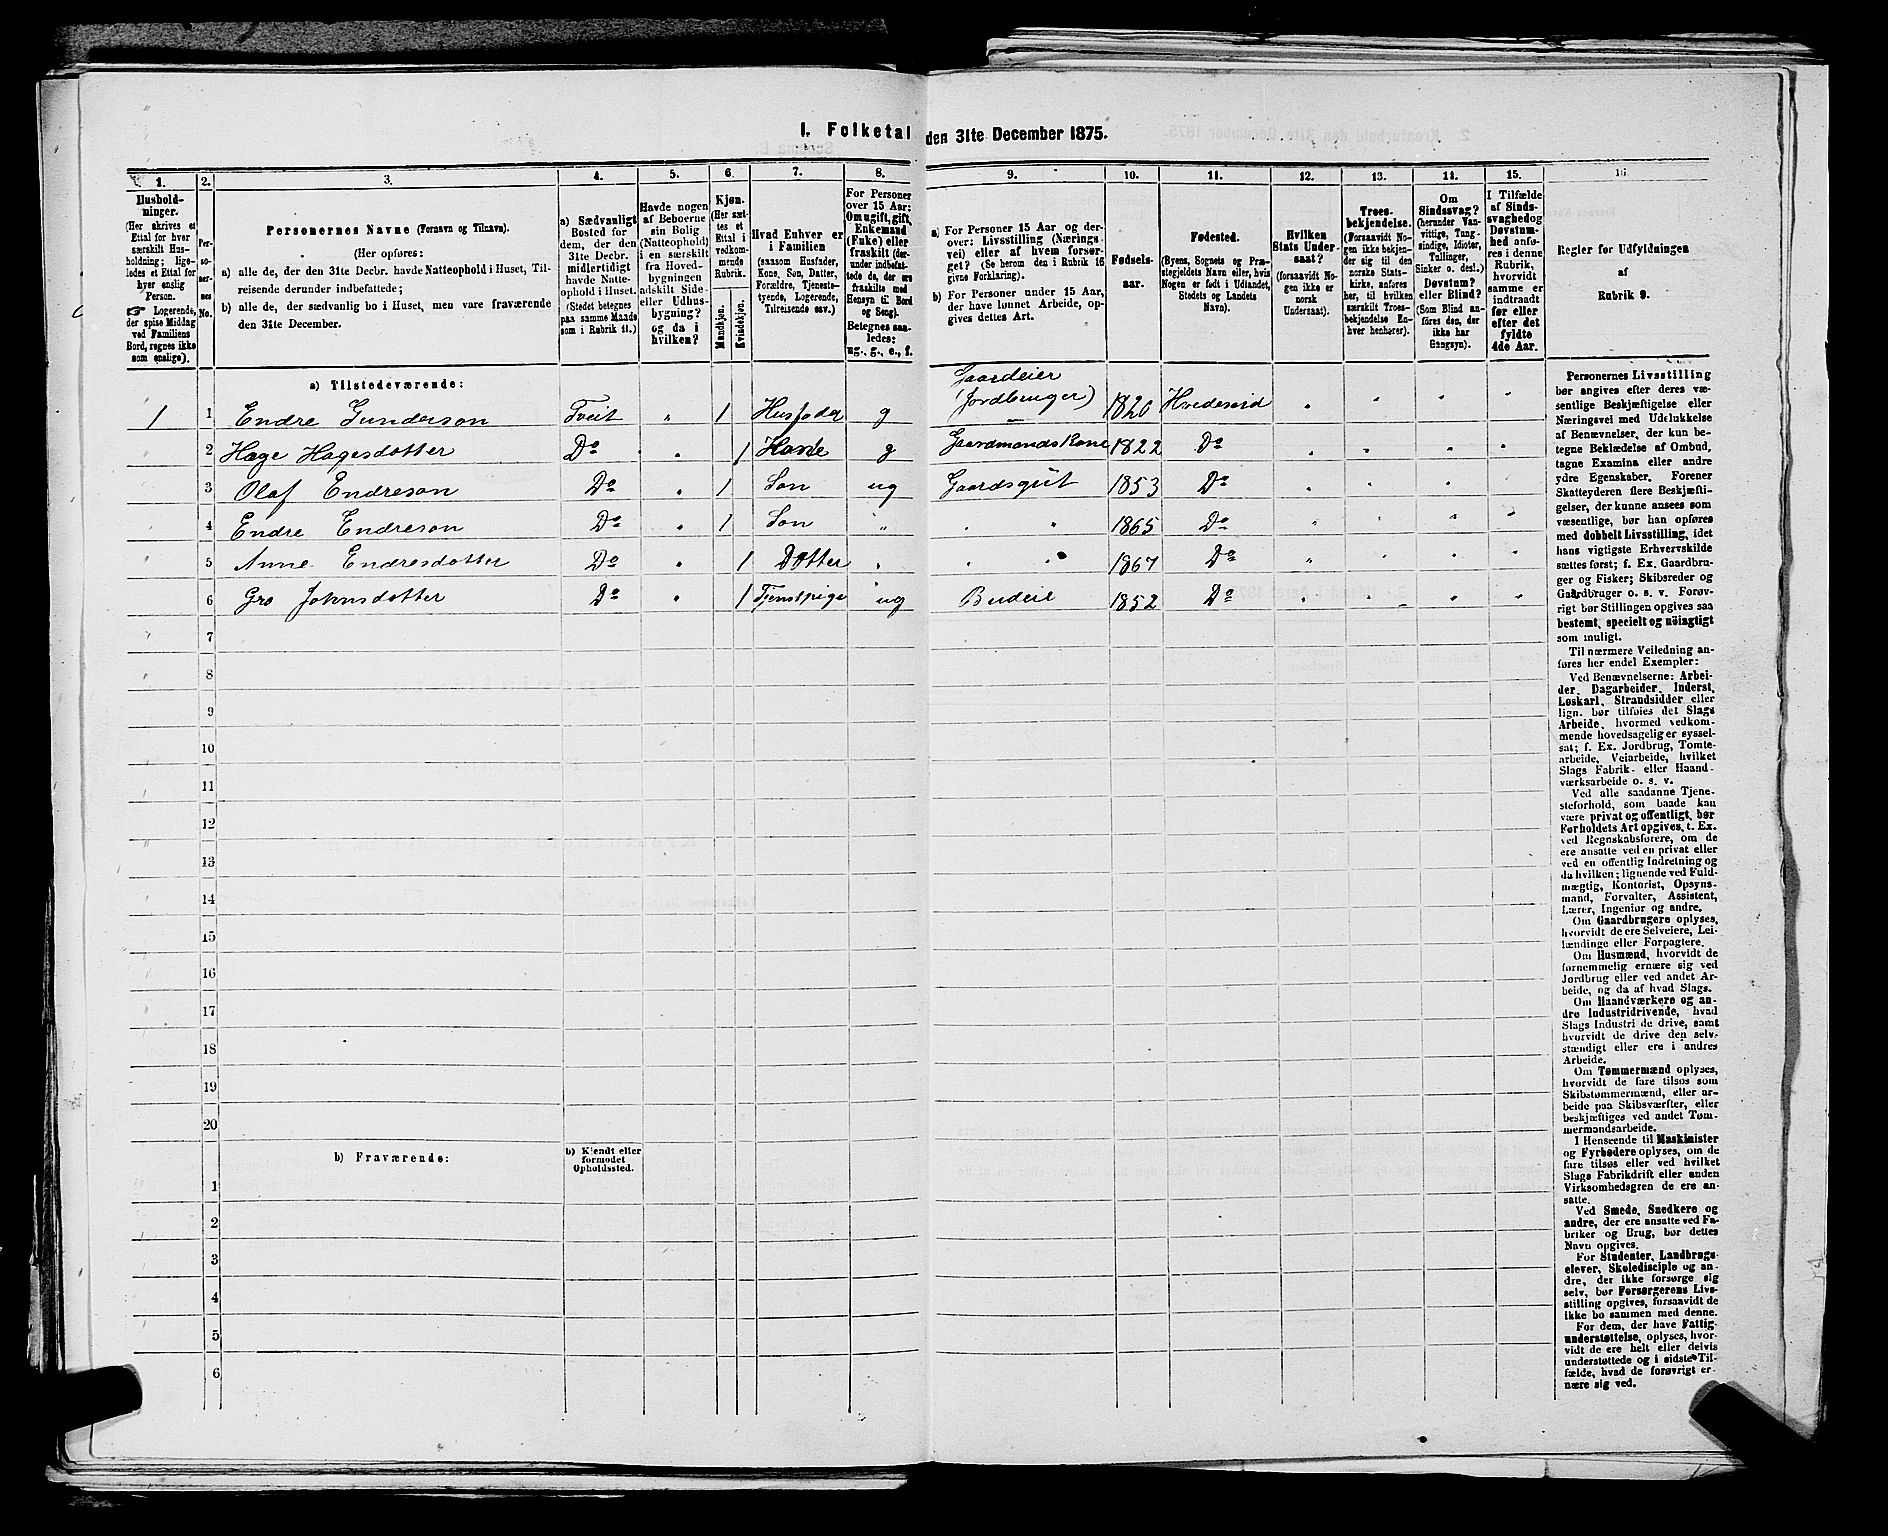 I. Folketal den 31te December 1875.
1. 2. 3. 4. 5. 6. 7. 8. 9. 10. 11. 12. 13. 14. 15. 16
Hushold-
ninger.
(Her skrives et
Ettal for hver
særskilt Hus-
holdning; lige-
ledes et Ettal for
hver enslig
Person.
☞ Logerende,
der spise Middag
ved Familiens
Bord, regnes ikke
som enslige).
Per-
so-
ner-
nes
No.
Personernes Navne (Fornavn og Tilnavn).
(Her opføres:
a) alle de, der den 31te Decbr. havde Natteophold i Huset, Til-
reisende derunder indbefattede;
b) alle de, der sædvanlig bo i Huset, men vare fraværende
den 31te December.
a) Sædvanligt
Bosted for
dem, der den
31te Decbr.
midlertidigt
havde Natte-
ophold i Huset.
(Stedet betegnes
paa samme Maade
som i Rubrik 11.)
Havde nogen
af Beboerne
sin Bolig
(Natteophold)
i en særskilt
fra Hoved-
bygningen
adskilt Side-
eller Udhus-
bygning?
og da i
hvilken?
Kjøn.
(Her sæt-
tes et
Ettal i
vedkom-
mende
Rubrik.
Mandkjøn.
Kvindekjøn.
Hvad Enhver er
i Familien
(saasom Husfader,
Kone, Søn, Datter,
Forældre, Tjeneste-
tyende, Logerende,
Tilreisende osv.)
For Personer
over 15 Aar:
Om ugift, gift,
Enkemand
(Enke) eller
fraskilt (der-
under indbefat-
tede de, der ere
fraskilte med
Hensyn til Bord
og Seng).
Betegnes saa-
ledes:
ug., g., e., f.
a) For Personer 15 Aar og der-
over: Livsstilling (Nærings-
vei) eller af hvem forsør-
get? (Se herom den i Rubrik 16
givne Forklaring).
b) For Personer under 15 Aar,
der have lønnet Arbeide, op-
gives dettes Art.
Fødsels-
aar.
Fødested.
(Byens, Sognets og Præ-
stegjeldets Navn eller, hvis
Nogen er født i Udlandet,
Stedets og Landets
Navn).
Hvilken
Stats Under-
saat?
(forsaavidt No-
gen ikke er
norsk
Undersaat).
Troes-
bekjendelse.
(Forsaavidt No-
gen ikke bekjen-
der sig til den
norske Stats-
kirke, anføres
her, til hvilken
særskilt Troes-
bekjendelse En-
hver henhører).
Om
Sindssvag?
(herunder Van-
vittige, Tung-
sindige, Idioter,
Tullinger,
Sinker o. desl.)
Døvstum?
eller Blind?
(Som Blind an-
føres den, der
ikke har
Gangsyn).
I Tilfælde
af Sinds-
svaghed og
Døvstum-
hed anfø-
res i denne
Rubrik,
hvorvidt
samme er
indtraadt
før eller
efter det
fyldte
4de Aar.
Regler for Udfyldningen
af
Rubrik 9.
a) Tilstedeværende:
1 1 Endre Gunderson Tveit „ 1 Husfader g Gaardeier (Jordbruger) 1820 Hvideseid
2 Hæge Hagesdotter Do 1 Kone g Gaardmandskone 1822 Do
3 Olaf Endreson Do 1 Søn ug Gaardsgut 1853 Do
4 Endre Endreson Do 1 Søn „ 1865 Do
5 Anne Endresdotter Do 1 Dotter 1867 Do
6 Gro Johnsdotter Do 1 Tjenstpige ug Budeie 1852 Do
7
8
9
10
11
12
13
14
15
16
17
18
19
20
b) Fraværende:
b) Kjendt eller
formodet
Opholdssted.
1
2
3
4
5
6
Personernes Livsstilling
bør angives efter deres væ-
sentlige Beskjæftigelse eller
Næringsvei med Udelukkelse
af Benævnelser, der kun be-
tegne Beklædelse af Ombud,
tagne Examina eller andre
ydre Egenskaber. Forener
Skatteyderen flere Beskjæfti-
gelser, der kunne ansees som
væsentlige, bør han opføres
med dobbelt Livsstilling, idet
hans vigtigste Erhvervskilde
sættes først; f. Ex. Gaardbru-
ger og Fisker; Skibsreder og
Gaardbruger o. s. v. Forøv-
rigt bør Stillingen opgives saa
bestemt, specielt og nöiagtigt
som muligt.
Til nærmere Veiledning an-
føres her endel Exempler:
Ved Benævnelserne: Arbei-
der, Dagarbeider, Inderst,
Løskarl, Strandsidder eller
lign. bør tilføies det Slags
Arbeide, hvormed vedkom-
mende hovedsagelig er syssel-
sat; f. Ex. Jordbrug, Tomte-
arbeide, Veiarbeide, hvilket
Slags Fabrik- eller Haand-
værksarbeide o. s. v.
Ved alle saadanne Tjene-
steforhold, som baade kan
være privat og offentligt, bør
Forholdets Art opgives, t. Ex.
ved Regnskabsførere, om de
ere ansatte ved en privat eller
ved en offentlig Indretning og
da hvilken; lignende ved Fuld-
mægtig, Kontorist, Opsyns-
mand, Forvalter, Assistent,
Lærer, Ingeniør og andre.
Om Gaardbrugere oplyses,
hvorvidt de ere Selveiere, Lei-
lændinge eller Forpagtere.
Om Husmænd, hvorvidt de
fornemmelig ernære sig ved
Jordbrug eller ved andet Ar-
beide, og da af hvad Slags.
Om Haandværkere og an-
dre Industridrivende, hvad
Slags Industri de drive, samt
hvorvidt de drive den selv-
stændigt eller ere i andres
Arbeide.
Om Tømmermænd oplyses,
hvorvidt de fare tilsøs som
Skibstømmermænd, eller ar-
beide paa Skibsværfter, eller
beskjæftiges ved andet Tøm-
mermandsarbeide.
I Henseende til Maskinister
og Fyrbødere oplyses, om de
fare tilsøs eller ved hvilket
Slags Fabrikdrift eller anden
Virksomhedsgren de ere an-
satte.
Ved Smede, Snedkere og
andre, der ere ansatte ved Fa-
briker og Brug, bør dettes
Navn opgives.
For Studenter, Landbrugs-
elever, Skoledisciple og an-
dre, der ikke forsørge sig
selv, bør Forsørgerens Livs-
stilling opgives, forsaavidt de
ikke bo sammen med denne.
For dem, der have Fattig-
understøttelse, oplyses, hvor-
vidt de ere helt eller delvis
understøttede og i sidste Til-
fælde, hvad de forøvrigt er-
nære sig ved.